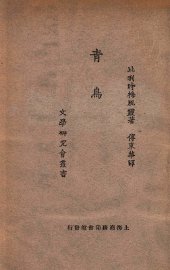 比利時梅脫靈著
傅東華譯
青鳥
文學研究會叢書
上海商務印書館發行